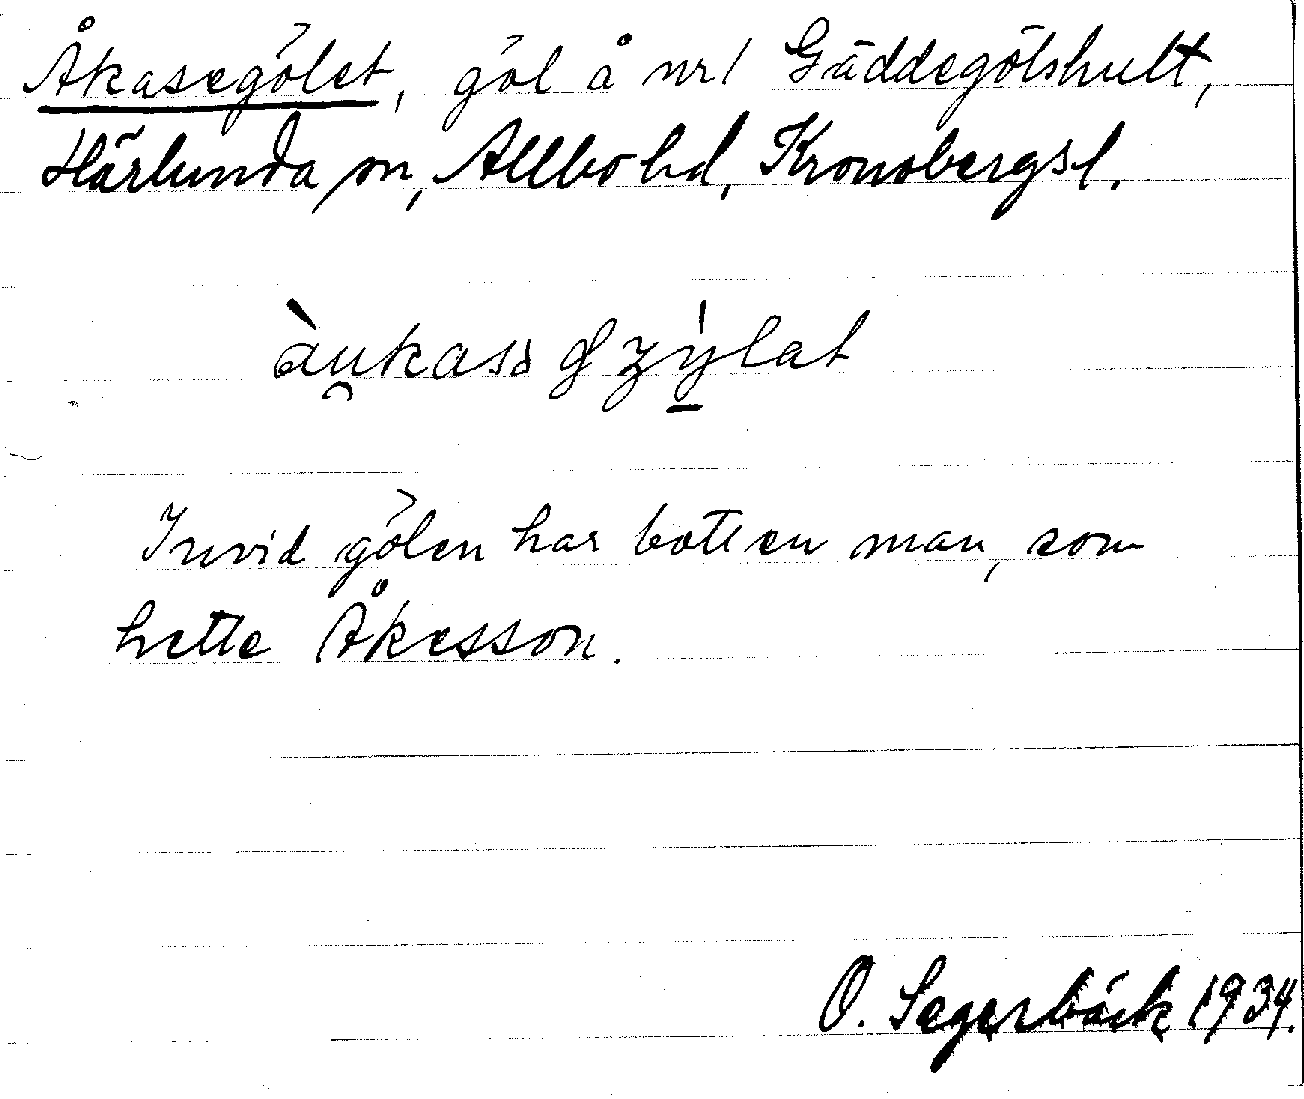 Åkasegölet, göl å nr 1 Gäddegölshult,
Härlunda sn, Allbo hd, Kronobergs l.
àu̯kasa ɠzýlat
Invid gölen har bott en man, som
hette Åkesson.
O. Segerbäck 1934.